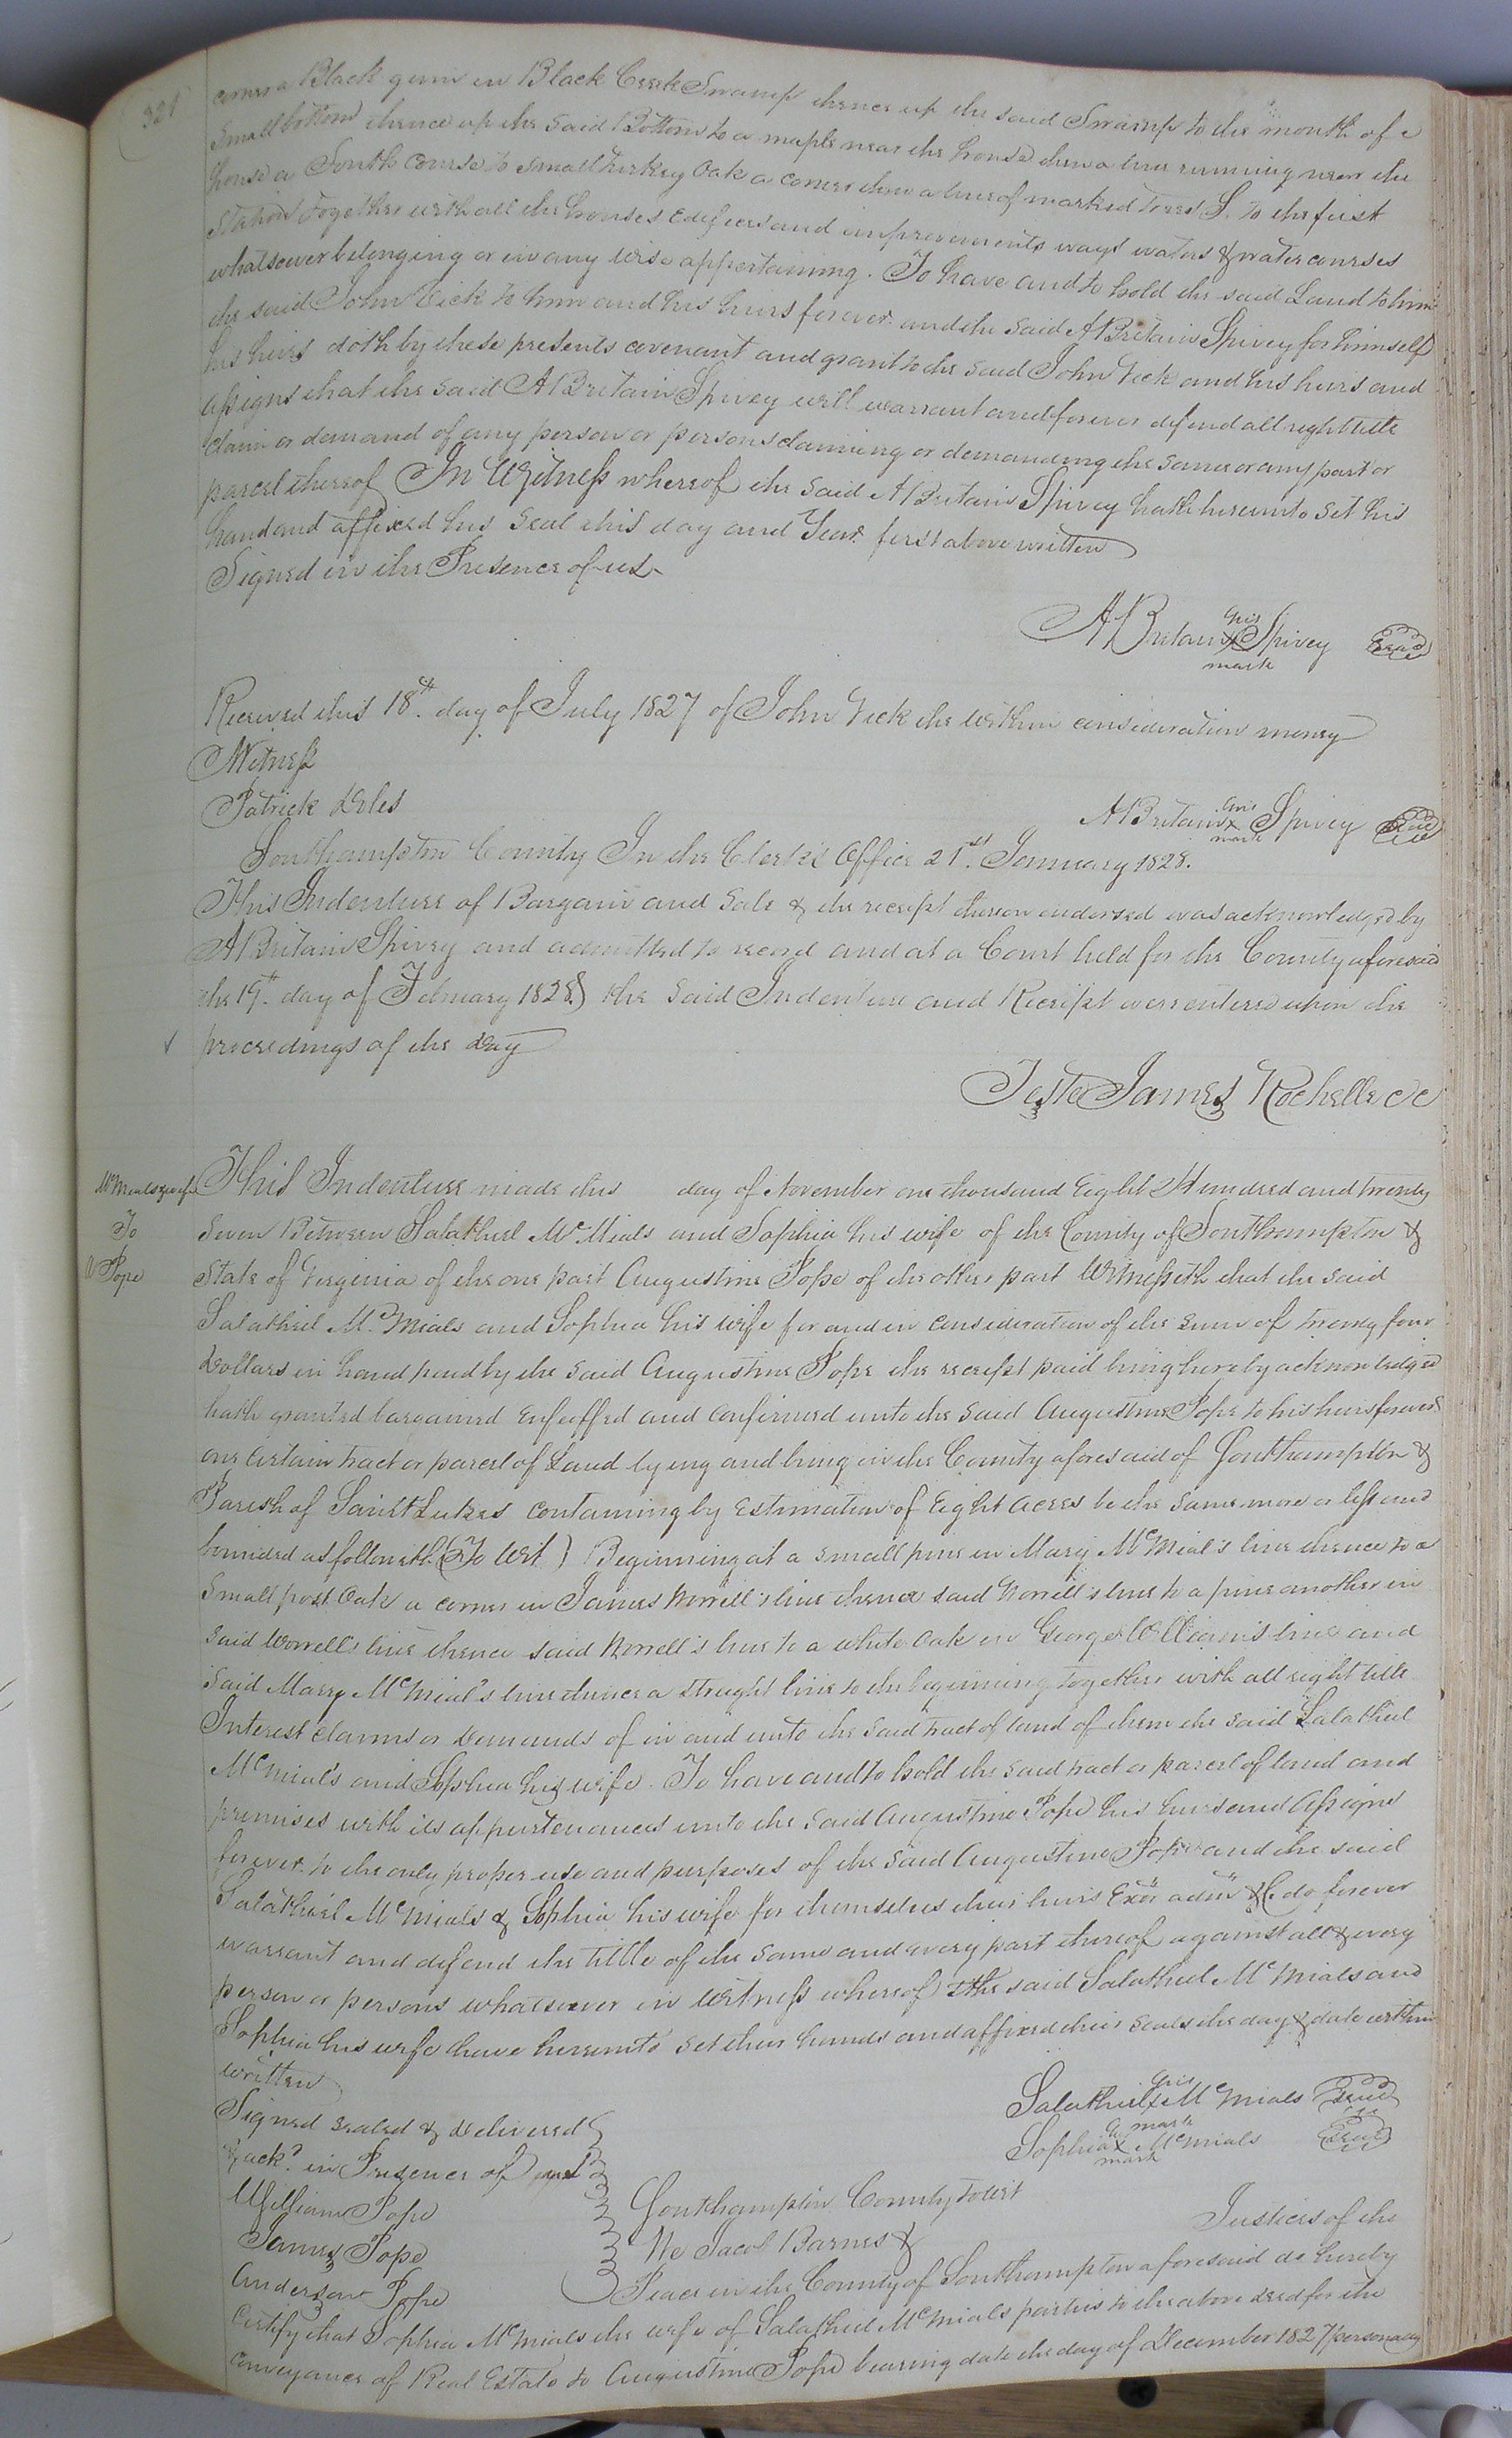 321
corner a Black gum in Black Creek Swamp thence up the said Swamp to the mouth of a
Small bottom thence up the said Bottom to a maple near the house then a line running near the
house a South course to small Turkey Oak a corner then a line of marked trees S. to the first
Station together with all the houses edifices and improvements ways waters & water courses
whatsoever belonging or in any wise appertaining. To have and to hold the said Land to him
the said John Vick to him and his heirs forever and the said A Britain Spivey for himself
his heirs doth by these presents covenant and grant to the said John Vick and his heirs and
assigns that the said A Britain Spivey will warrant and forever defend all right title
claim or demand of any person or persons claiming or demanding the same or any part or
parcel thereof In Witness whereof the said A Britain Spivey hath hereunto set his
hand and affixed his seal this day and Year first above written
Signed in the Presence of us
A Britain his x mark Spivey Seal
Received this 18th. day of July 1827 of John Vick the within consideration money
Witness
Patrick Doles
A Britain his x mark Spivey Seal
Southampton County In the Clerk's Office 21st. January 1828.
This Indenture of Bargain and Sale & the receipt thereon endorsed was acknowledged by
A Britain Spivey and admitted to record and at a Court held for the County aforesaid
the 19th. day of February 1828 the said Indenture and Receipt were entered upon the
proceedings of the day
Teste James Rochelle CC
McMials & wife
To
A Pope
This Indenture made this day of November one thousand Eight Hundred and twenty
Seven Between Salathiel Mc.Mials and Sophia his wife of the County of Southampton &
State of Virginia of the one part Augustine Pope of the other part Witnesseth that the said
Salathiel Mc.Mials and Sophia his wife for and in consideration of the sum of twenty four
Dollars in hand paid by the said Augustine Pope the receipt paid being hereby acknowledged
hath granted bargained enfeoffed and confirmed unto the said Augustine Pope to his heirs forever
one certain tract or parcel of Land lying and being in the County aforesaid of Southampton &
Parish of Saint Lukes containing by Estimation of Eight acres be the same more or less and
bounded as followeth (To Wit) Beginning at a small pine in Mary McMial's line thence to a
small post Oak a corner in James Worrell's line thence said Worrell's line to a pine another in
said Worrell's line thence said Worrell's line to a white Oak in George William's line and
said Mary McMial's line thence a straight line to the beginning together with all right title
Interest claims or Demands of in and unto the said tract of land of them the said Salathiel
McMials and Sophia his wife. To have and to hold the said tract or parcel of land and
premises with its appurtenances unto the said Augustine Pope his heirs and Assigns
forever to the only proper use and purposes of the said Augustine Pope and the said
Salathiel McMials & Sophia his wife for themselves their heirs Exors admrs &C do forever
warrant and defend the title of the same and every part thereof against all & every
person or persons whatsoever in Witness whereof the said Salathiel McMials and
Sophia his wife have hereunto set their hands and affixed their seals the day & date within
written
Signed sealed & delivered
& ackd. in Presence of us
William Pope
James Pope
Anderson Pope
Salathiel his x mark McMials Seal
Sophia her x mark McMials Seal
Southampton County to wit
We Jacob Barnes & Justices of the
Peace in the County of Southampton aforesaid do hereby
certify that Sophia McMials the wife of Salathiel McMials parties to the above deed for the
conveyance of Real Estate to Augustine Pope bearing date the day of December 1827 personally